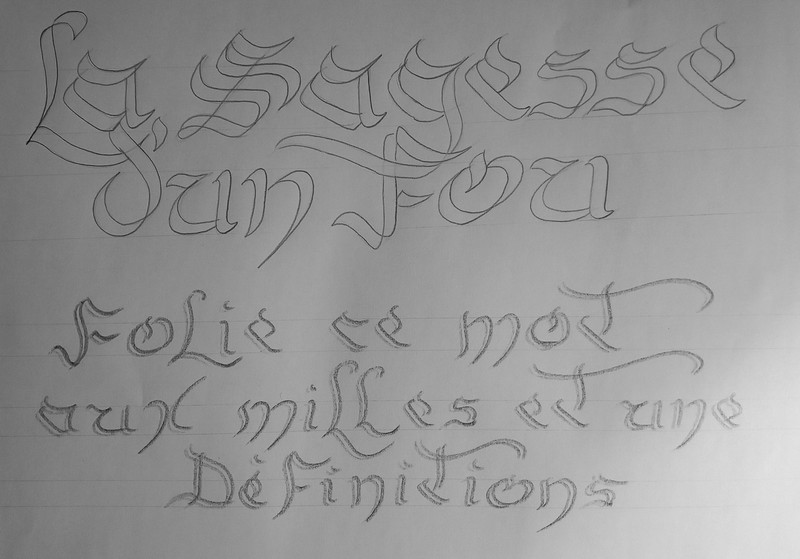 La Sagesse
d'un Fou
Folie ce mot
aux milles et une
Définitions